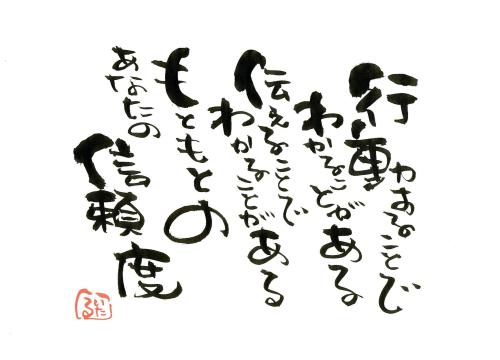 行動することで
わかることがある
伝えることで
わかることがある
もともとの
あなたの
信頼度